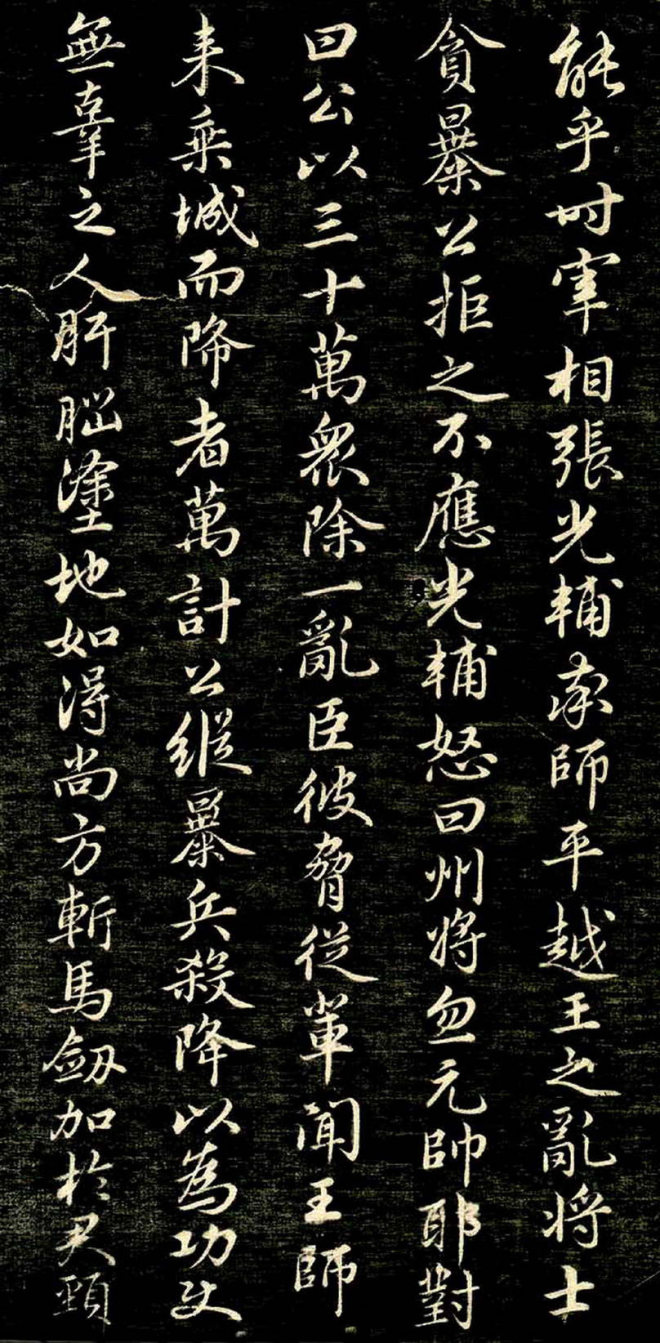 能乎时宰相張光輔率師平越王之亂将士
貪暴公拒之不應光輔怒曰州将忽元帥耶對
曰公以三十萬衆除一亂臣彼脅從輩聞王師
来乗城而降者萬計公縱暴兵殺降以為功使
無辜之人肝脳塗地如得尚方斬馬劔加於君頸